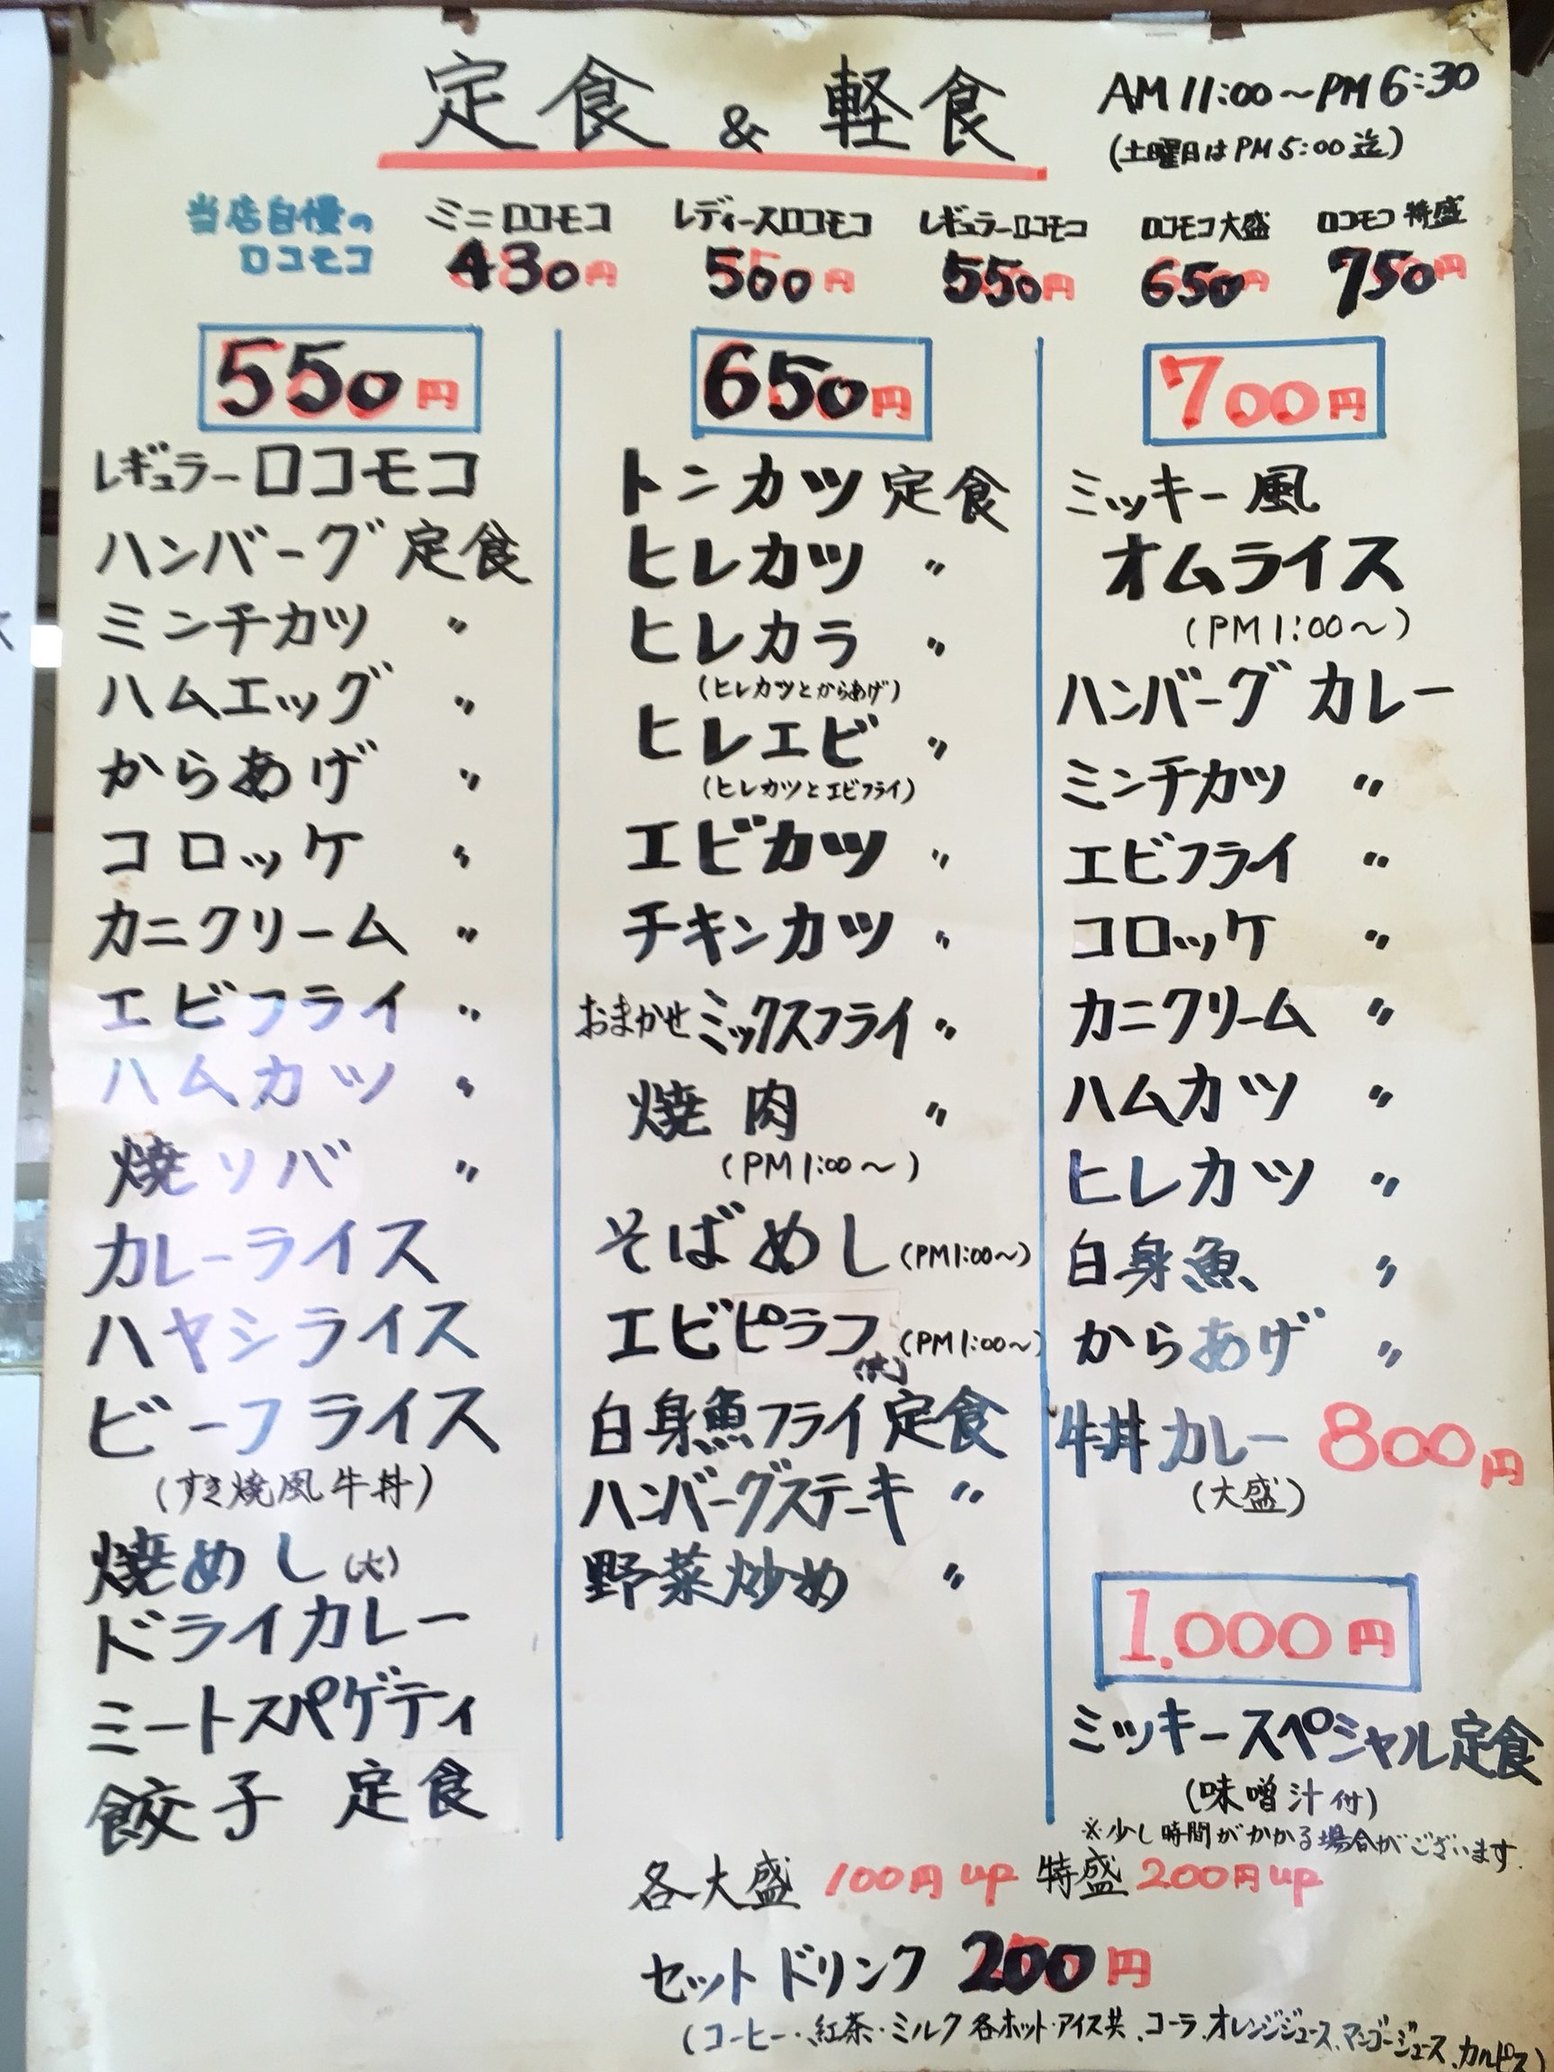 定食 & 軽食
AM 11:00～PM 6:30
(土曜日はPM 5:00 迄)
当店自慢の
ロコモコ
ミニロコモコ
430円
レディースロコモコ
500円
レギュラーロコモコ
550円
ロコモコ大盛
650円
ロコモコ 特盛
750円
550円
レギュラーロコモコ
ハンバーグ 定食
ミンチカツ 〃
ハムエッグ 〃
からあげ 〃
コロッケ 〃
カニクリーム 〃
エビフライ 〃
ハムカツ 〃
焼ソバ 〃
カレーライス
ハヤシライス
ビーフライス
(すき焼風牛丼)
焼めし(大)
ドライカレー
ミートスパゲティ
餃子 定食
650円
トンカツ 定食
ヒレカツ 〃
ヒレカラ 〃
(ヒレカツとからあげ)
ヒレエビ 〃
(ヒレカツとエビフライ)
エビカツ 〃
チキンカツ 〃
おまかせミックスフライ 〃
焼肉 〃
(PM 1:00～)
そばめし (PM1:00～)
エビピラフ (PM1:00～)
(大)
白身魚フライ定食
ハンバーグステーキ 〃
野菜炒め 〃
700円
ミッキー風
オムライス
(PM 1:00～)
ハンバーグ カレー
ミンチカツ 〃
エビフライ 〃
コロッケ 〃
カニクリーム 〃
ハムカツ 〃
ヒレカツ 〃
白身魚 〃
からあげ 〃
牛丼カレー 800円
(大盛)
1,000円
ミッキースペシャル定食
(味噌汁付)
※少し時間がかかる場合がございます.
各大盛 100円up 特盛 200円up
セットドリンク 200円
(コーヒー・紅茶・ミルク 各ホット・アイス共、コーラ、オレンジジュース、マンゴージュース、カルピス)